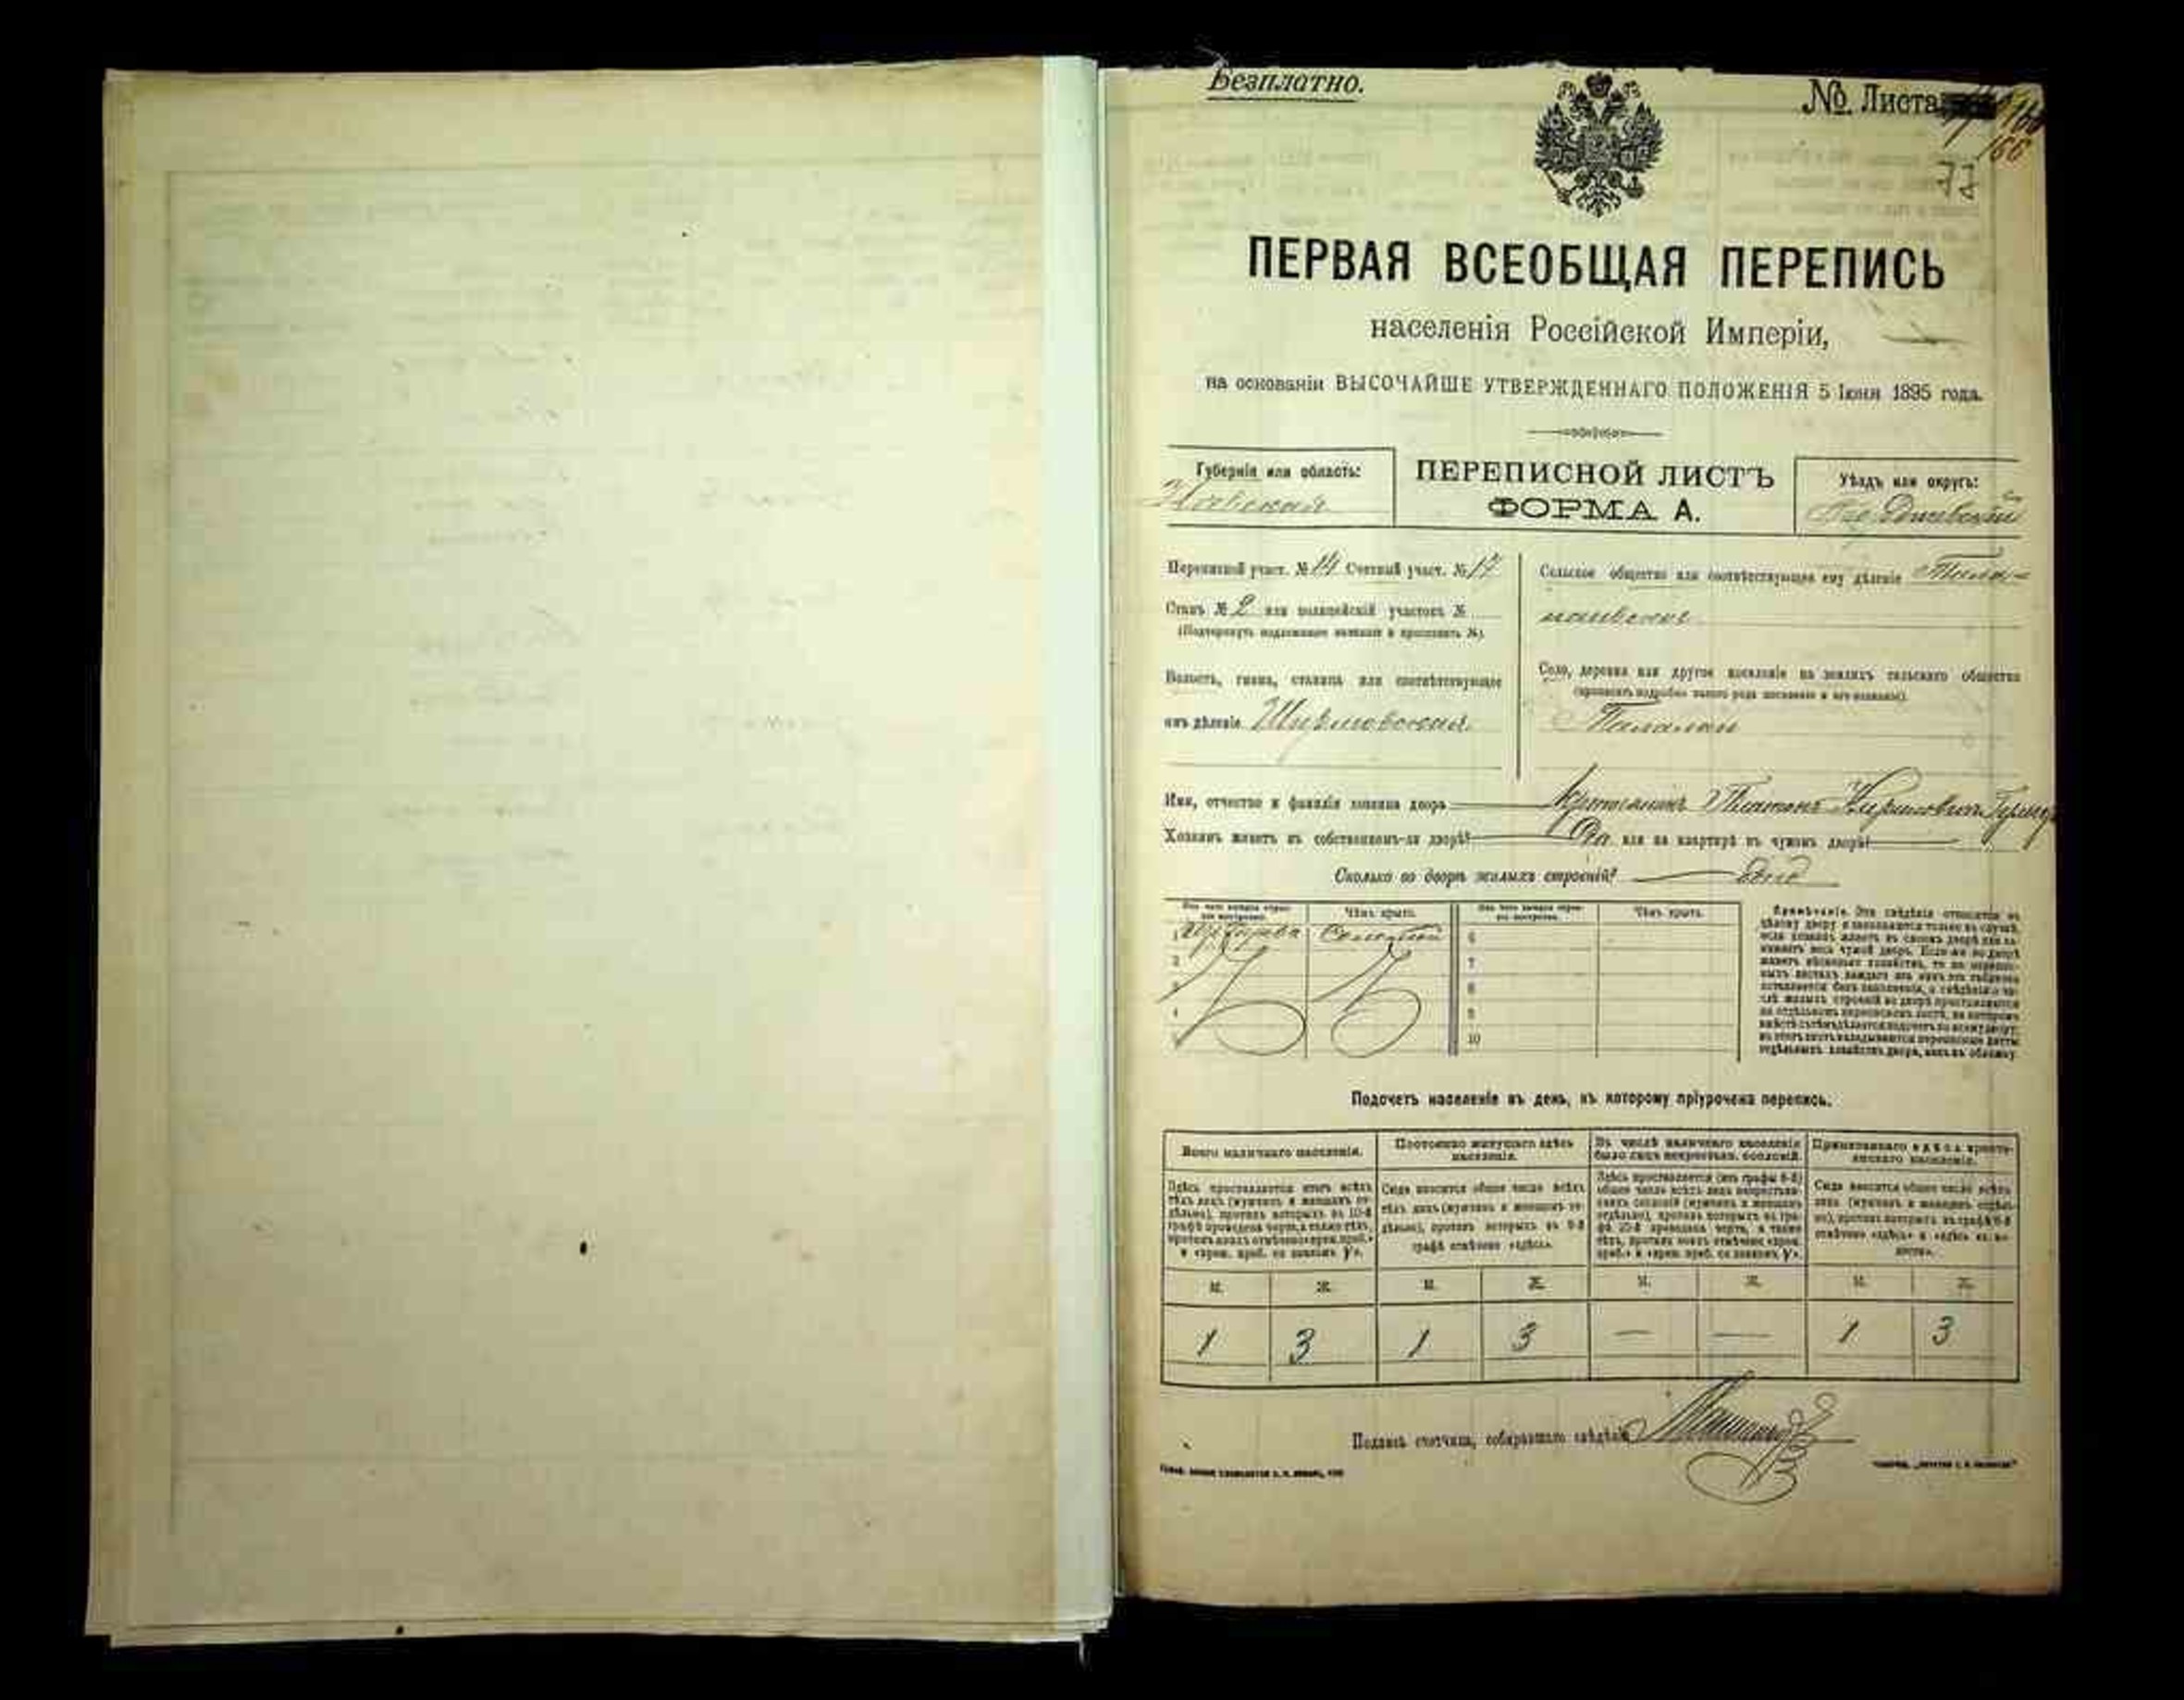 Безплатно.
№ Листа
166
77
ПЕРВАЯ ВСЕОБЩАЯ ПЕРЕПИСЬ
населенія Россійской Имперіи,
на основаніи ВЫСОЧАЙШЕ УТВЕРЖДЕННАГО ПОЛОЖЕНІЯ 5 Іюня 1895 года.
Губернія или область:
Кіевская
ПЕРЕПИСНОЙ ЛИСТЪ
ФОРМА А.
Уѣздъ или округъ:
Бердичевскій
Переписной участ. № 14 Счетный участ. № 17
Станъ № 2 или полицейскій участокъ №
(Подчеркнуть надлежащее названіе и проставить №).
Волость, гмина, станица или соотвѣтствующее
имъ дѣленіе
Сельское общество или соотвѣтствующее ему дѣленіе
Село, деревня или другое поселеніе на земляхъ сельскаго общества
(прописать подробно какого рода поселеніе и его названіе).
Имя, отчество и фамилія хозяина двора Крестьянинъ Платонъ
Хозяинъ живетъ въ собственномъ-ли дворѣ? Да или на квартирѣ въ чужомъ дворѣ?
Сколько во дворѣ жилыхъ строеній? одно
Изъ чего каждое строеніе построено. Чѣмъ крыто. Изъ чего каждое строеніе построено. Чѣмъ крыто.
1 Изъ дерева Соломой 6
2 7
3 8
4 9
5 10
Примѣчаніе. Эти свѣдѣнія относятся къ
цѣлому двору и заполняются только въ случаѣ,
если хозяинъ живетъ въ своемъ дворѣ или за-
нимаетъ весь чужой дворъ. Если-же во дворѣ
живетъ нѣсколько хозяйствъ, то на перепис-
ныхъ листахъ каждаго изъ нихъ эта табличка
оставляется безъ заполненія, а свѣдѣнія о чи-
слѣ жилыхъ строеній во дворѣ проставляются
на отдѣльномъ переписномъ листѣ, на которомъ
вмѣстѣ съ тѣмъ дѣлается подсчетъ по всему двору;
въ этотъ листъ вкладываются переписные листы
отдѣльныхъ хозяйствъ двора, какъ въ обложку.
Подсчетъ населенія въ день, къ которому пріурочена перепись.
Всего наличнаго населенія. Постоянно живущаго здѣсь населенія. Въ числѣ наличнаго населенія было лицъ некрестьян. сословій. Приписаннаго здѣсь крестьянскаго населенія.
Здѣсь проставляется итогъ всѣхъ
тѣхъ лицъ (мужчинъ и женщинъ от-
дѣльно), противъ которыхъ въ 10-й
графѣ проведена черта, а также тѣхъ,
противъ коихъ отмѣчено «врем. преб.»
и «врем. преб. со знакомъ V».
Сюда вносится общее число всѣхъ
тѣхъ лицъ (мужчинъ и женщинъ от-
дѣльно), противъ которыхъ въ 9-й
графѣ отмѣчено «здѣсь».
Сюда вносится общее число всѣхъ
лицъ (мужчинъ и женщинъ отдѣль-
но), противъ которыхъ въ графѣ 8-й
отмѣчено «здѣсь» и «здѣсь въ во-
лости».
М. Ж. М. Ж. М. Ж. М. Ж.
1 3 1 3 — — 1 3
Подпись счетчика, собиравшаго свѣдѣнія